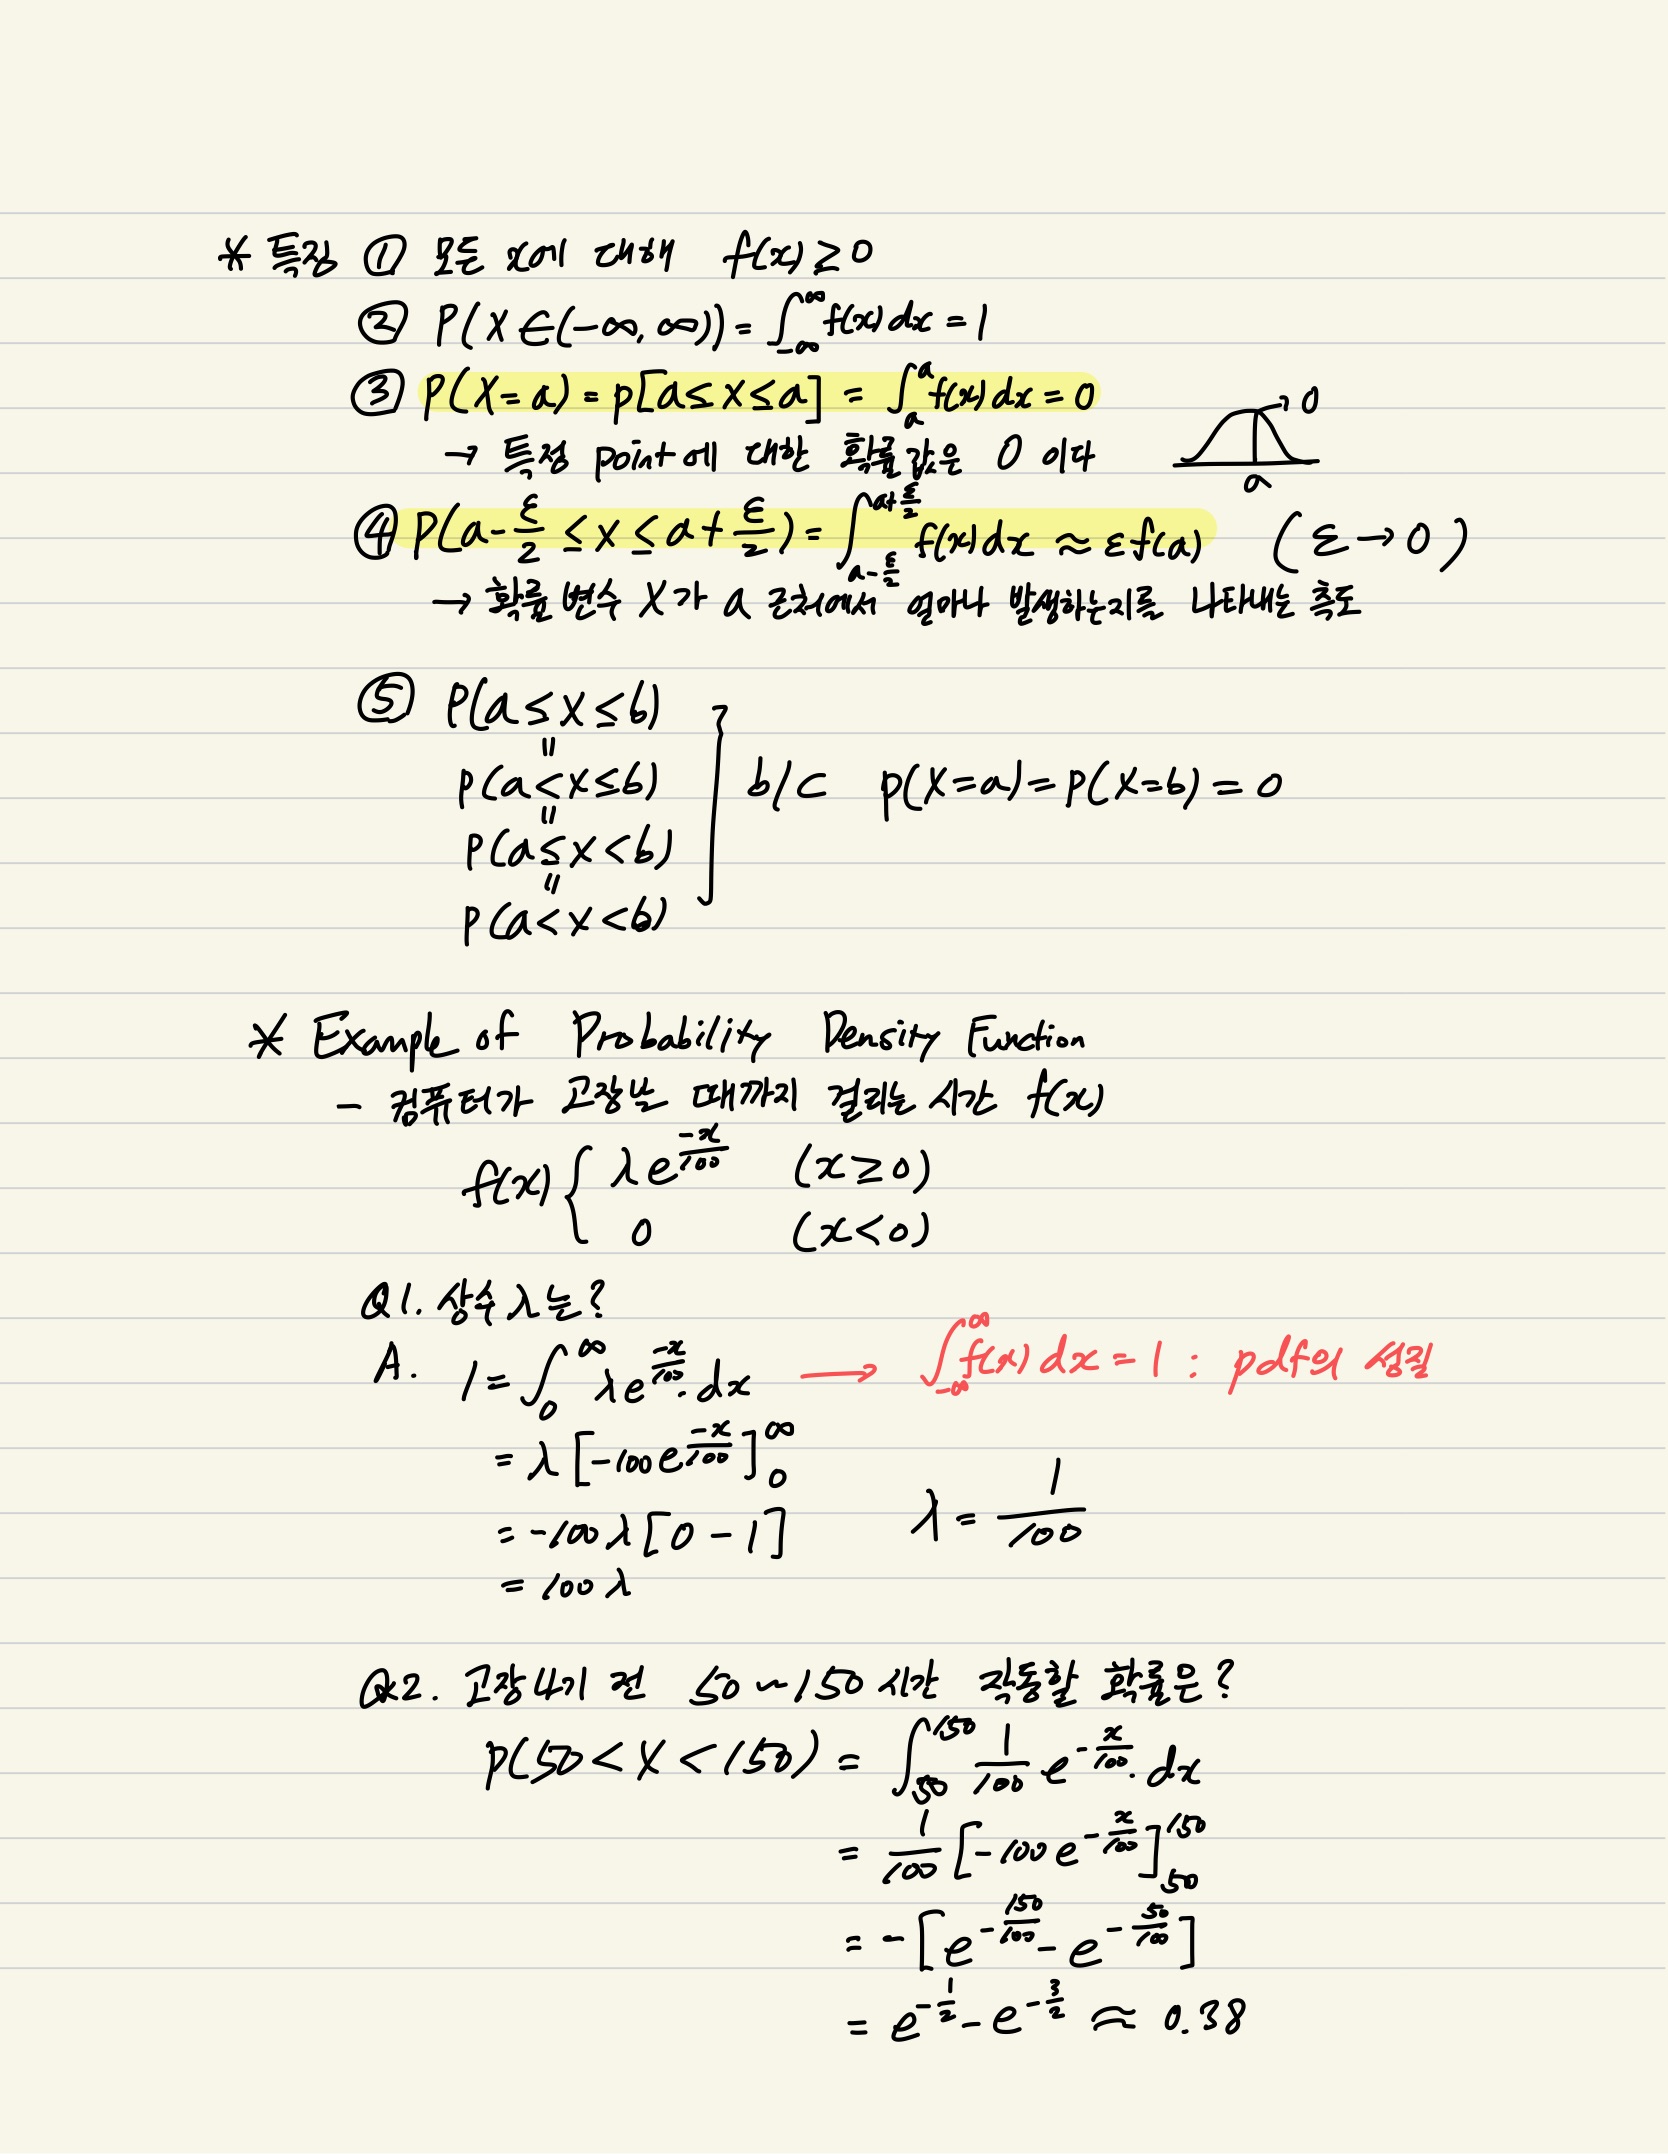 * 특징 ① 모든 x에 대해 f(x) ≥ 0
② P(X ∈ (-∞, ∞)) = ∫_{-∞}^{∞} f(x) dx = 1
③ P(X = a) = P[a ≤ X ≤ a] = ∫_{a}^{a} f(x) dx = 0
→ 0
→ 특정 point에 대한 확률값은 0 이다
a
④ P(a - ε/2 ≤ X ≤ a + ε/2) = ∫_{a-ε/2}^{a+ε/2} f(x) dx ≈ εf(a) (ε → 0)
→ 확률 변수 X가 a 근처에서 얼마나 발생하는지를 나타내는 측도
⑤ P(a ≤ X ≤ b)
=
P(a < X ≤ b)
b/c P(X=a) = P(X=b) = 0
=
P(a ≤ X < b)
=
P(a < X < b)
* Example of Probability Density Function
- 컴퓨터가 고장날 때까지 걸리는 시간 f(x)
f(x) { λe^{-x/100} (x ≥ 0)
0 (x < 0)
Q1. 상수 λ는?
A. 1 = ∫_{0}^{∞} λe^{-x/100} · dx → ∫_{-∞}^{∞} f(x) dx = 1 : pdf의 성질
= λ [-100e^{-x/100}]_{0}^{∞}
= -100λ [0 - 1] λ = 1/100
= 100λ
Q2. 고장나기 전 50~150 시간 작동할 확률은?
P(50 < X < 150) = ∫_{50}^{150} 1/100 e^{-x/100} · dx
= 1/100 [-100e^{-x/100}]_{50}^{150}
= -[e^{-150/100} - e^{-50/100}]
= e^{-1/2} - e^{-3/2} ≈ 0.38